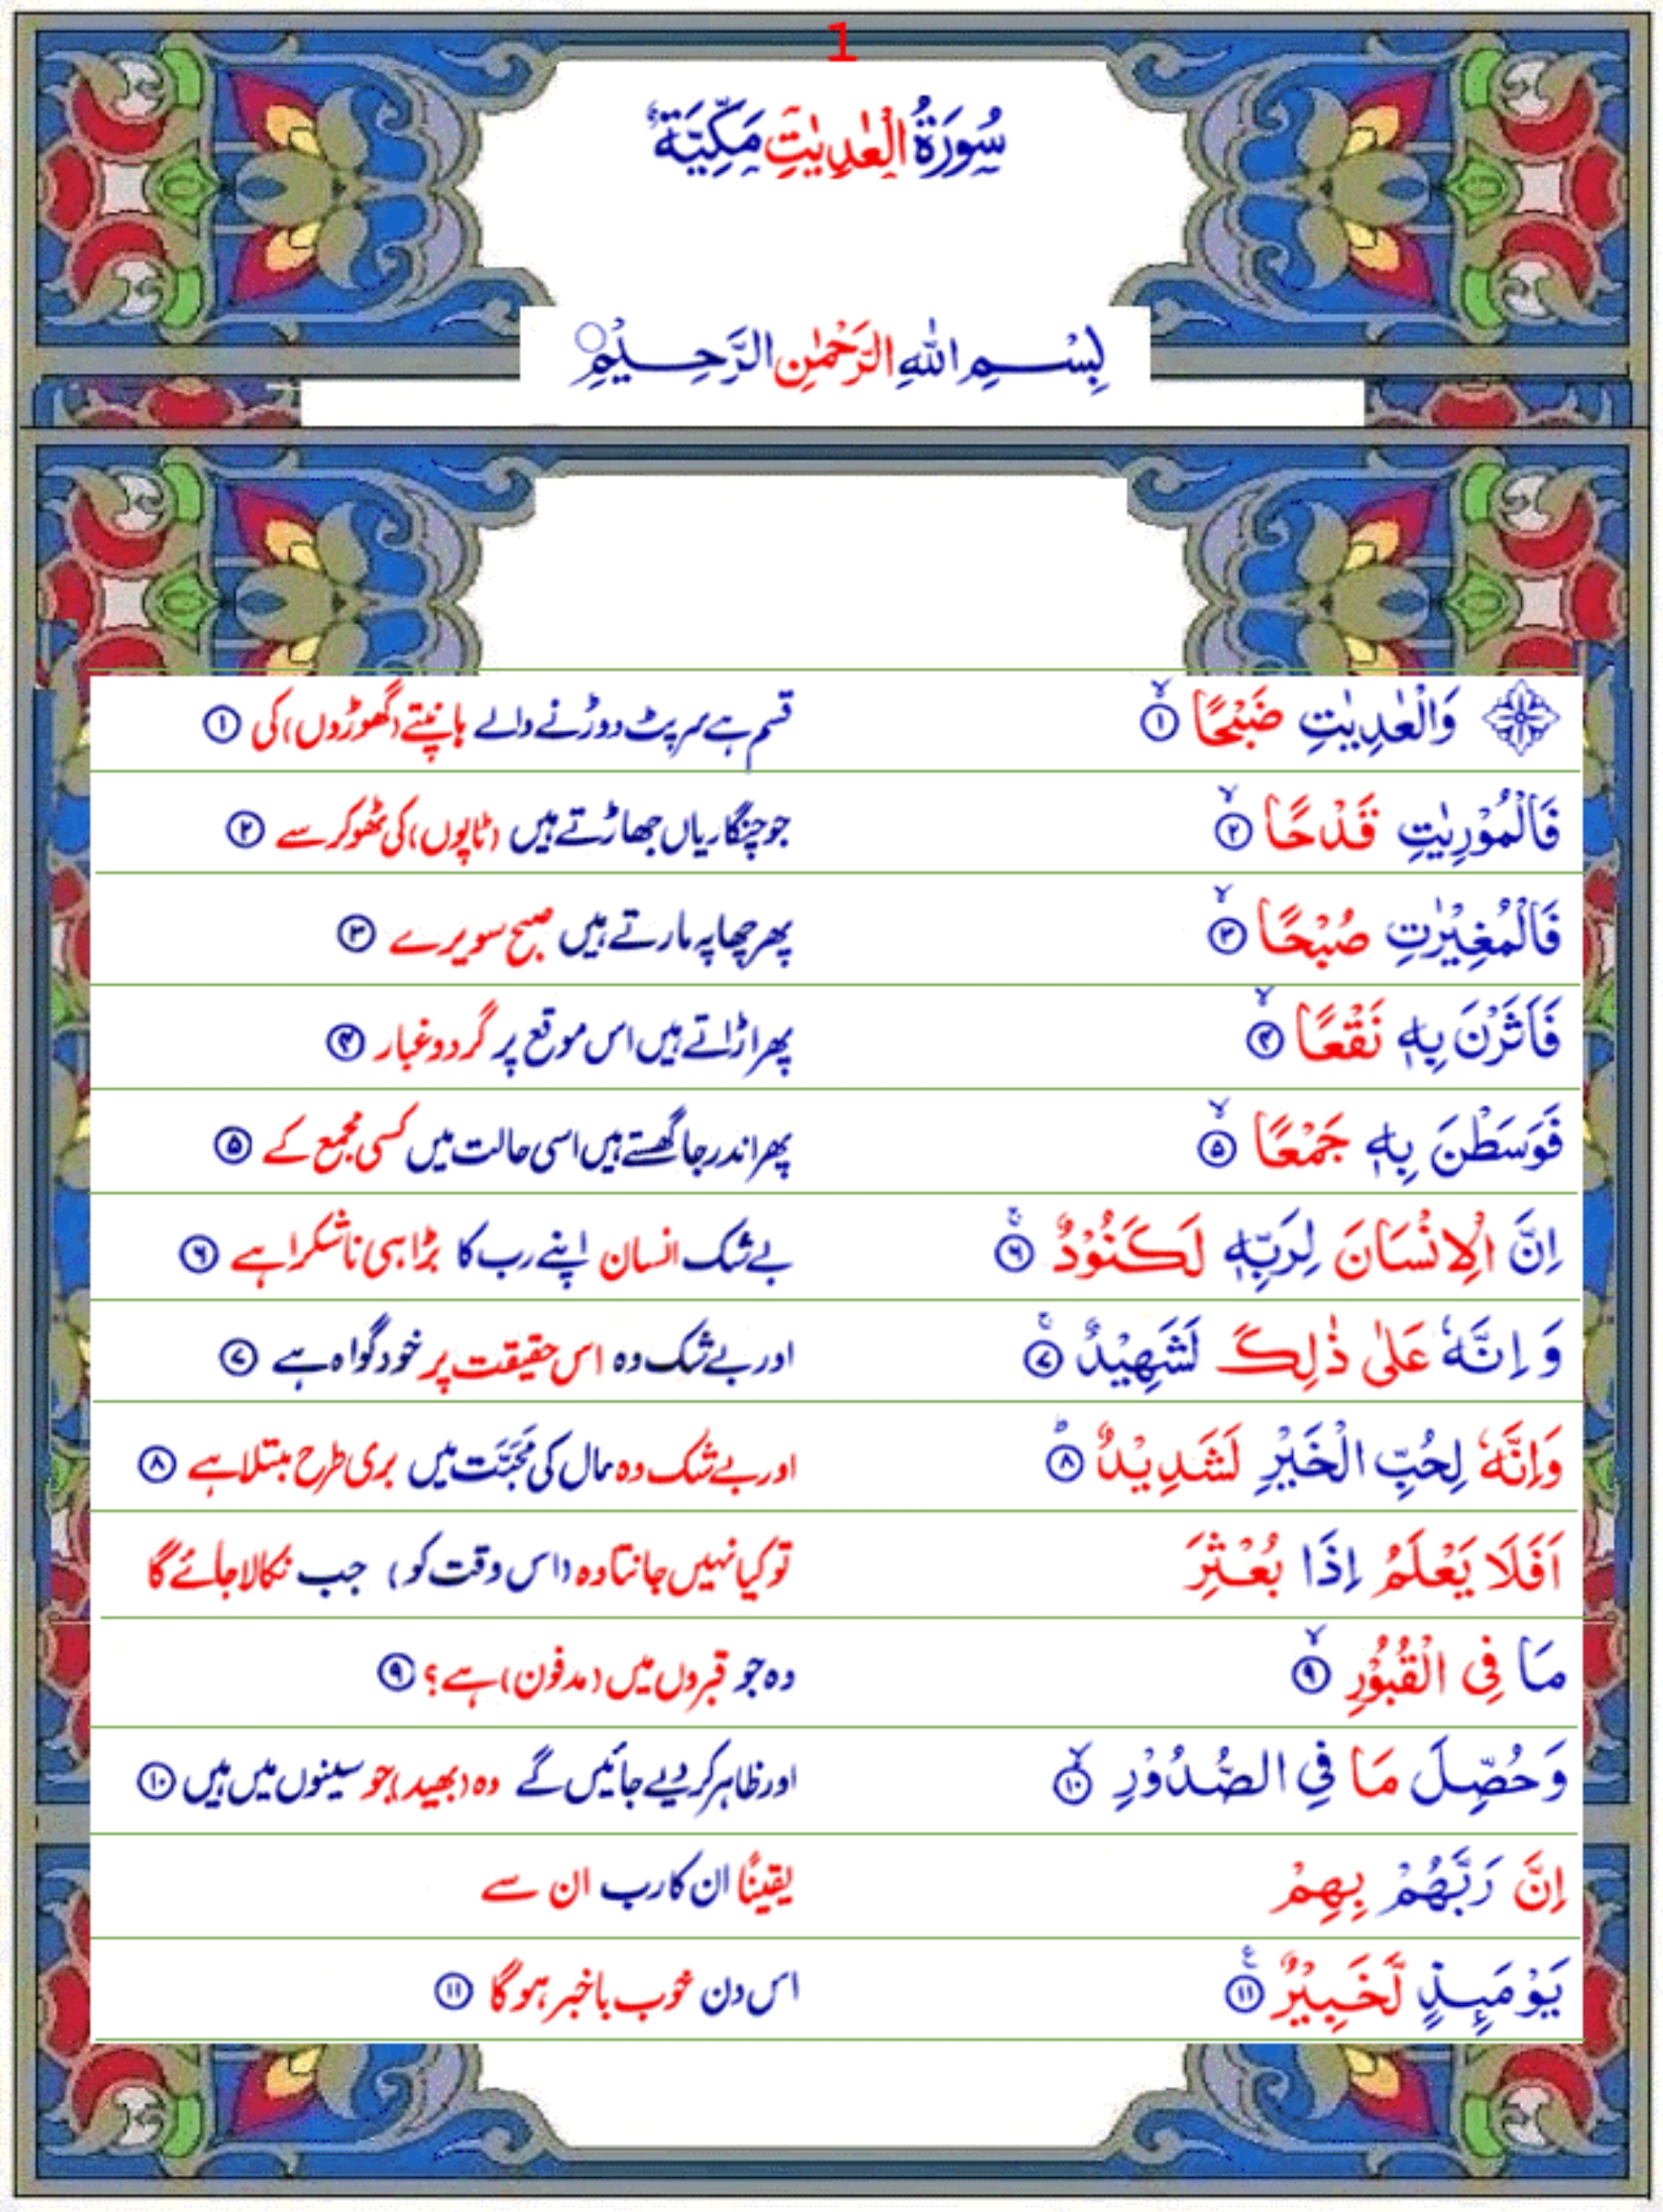 1
سُوْرَةُ الْعٰدِيٰتِ مَكِّيَّةٌ
بِسْمِ اللهِ الرَّحْمٰنِ الرَّحِيْمِ
وَالْعٰدِيٰتِ ضَبْحًا ۙ ١ قسم ہے سرپٹ دوڑنے والے ہانپتے (گھوڑوں) کی ۱
فَالْمُوْرِيٰتِ قَدْحًا ۙ ٢ جو چنگاریاں جھاڑتے ہیں (ٹاپوں) کی ٹھوکر سے ۲
فَالْمُغِيْرٰتِ صُبْحًا ۙ ٣ پھر چھاپہ مارتے ہیں صبح سویرے ۳
فَاَثَرْنَ بِهٖ نَقْعًا ۙ ۴ پھر اڑاتے ہیں اس موقع پر گرد و غبار ۴
فَوَسَطْنَ بِهٖ جَمْعًا ۙ ۵ پھر اندر جا گھستے ہیں اسی حالت میں کسی مجمع کے ۵
اِنَّ الْاِنْسَانَ لِرَبِّهٖ لَكَنُوْدٌ ۚ ۶ بے شک انسان اپنے رب کا بڑا ہی ناشکرا ہے ۶
وَ اِنَّهٗ عَلٰى ذٰلِكَ لَشَهِيْدٌ ۚ ۷ اور بے شک وہ اس حقیقت پر خود گواہ ہے ۷
وَاِنَّهٗ لِحُبِّ الْخَيْرِ لَشَدِيْدٌ ؕ ۸ اور بے شک وہ مال کی مَحَبَّت میں بری طرح مبتلا ہے ۸
اَفَلَا يَعْلَمُ اِذَا بُعْثِرَ تو کیا نہیں جانتا وہ (اس وقت کو) جب نکالا جائے گا
مَا فِى الْقُبُوْرِ ۙ ۹ وہ جو قبروں میں (مدفون) ہے؟ ۹
وَحُصِّلَ مَا فِى الصُّدُوْرِ ۙ ۱۰ اور ظاہر کر دیے جائیں گے وہ (بھید) جو سینوں میں ہیں ۱۰
اِنَّ رَبَّهُمْ بِهِمْ یقینًا ان کا رب ان سے
يَوْمَىِٕذٍ لَّخَبِيْرٌ ۧ ۱۱ اس دن خوب باخبر ہو گا ۱۱